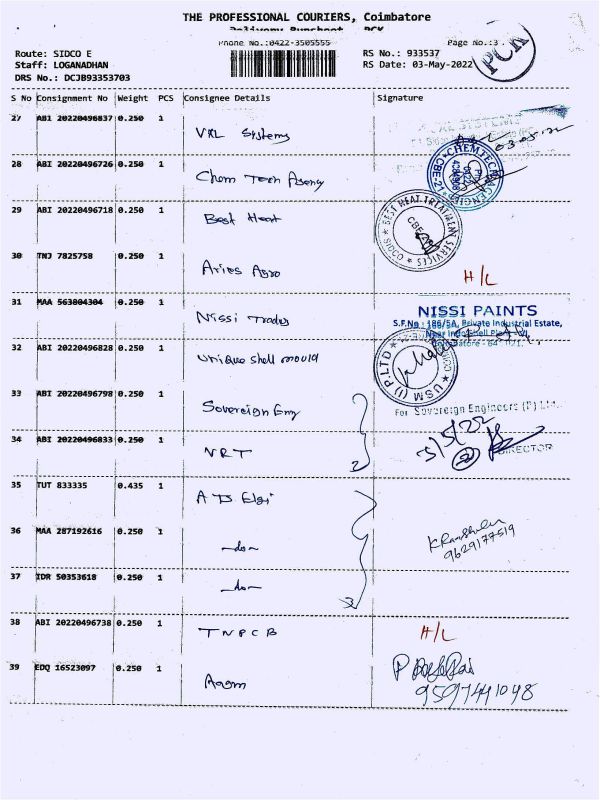 THE PROFESSIONAL COURIERS, Coimbatore
Delivery Runsheet PCK
Phone No.:0422-3505555 Page No.:3
PCK
Route: SIDCO E RS No.: 933537
Staff: LOGANADHAN RS Date: 03-May-2022
DRS No.: DCJB93353703
S No Consignment No Weight PCS Consignee Details Signature
27 ABI 20220496837 0.250 1 VXL Systems
03.05.22
28 ABI 20220496726 0.250 1 Chem Tech Agency
CHEMTECH AGENCIES CBE-21
29 ABI 20220496718 0.250 1 Best Heat
BEST HEAT TREATMENT SERVICES
30 TNJ 7825758 0.250 1 Aries Agro H/L
31 MAA 563804304 0.250 1 Nissi Trades
NISSI PAINTS
S.F.No : 186/5A, Private Industrial Estate,
32 ABI 20220496828 0.250 1 Unique shell mould
USM (I) P.LTD
33 ABI 20220496798 0.250 1 Sovereign Eng
For Sovereign Engineers (P) Ltd.
3/5/22
DIRECTOR
34 ABI 20220496833 0.250 1 NRT 2
35 TUT 833335 0.435 1 A TS Elgi
36 MAA 287192616 0.250 1 -do-
9629177519
37 IDR 50353618 0.250 1 -do- 3
38 ABI 20220496738 0.250 1 TNPCB H/L
39 EDQ 16523097 0.250 1
9597441048